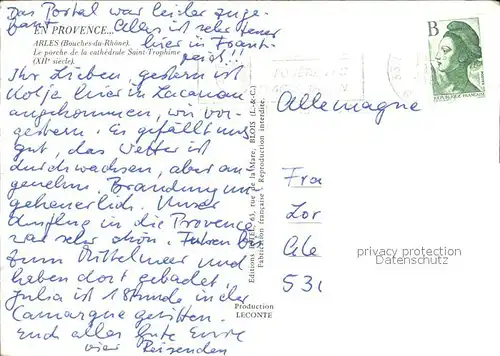 Das Portal war leider zuge-
baut. Alles ist sehr teuer
hier in Frank-
reich!
EN PROVENCE...
ARLES (Bouches-du-Rhône).
Le porche de la cathédrale Saint-Trophime
(XIIe siècle).
Ihr Lieben, gestern ist
Kolja hier in Lacanau
angekommen, wir vor-
gestern. Es gefällt uns
gut, das Wetter ist
durchwachsen, aber an-
genehm. Brandung un-
geheuerlich. Unser
Ausflug in die Provence
war sehr schön. Fuhren bis
zum Mittelmeer und
haben dort gebadet.
Julia ist 1 Stunde in der
Camargue geritten.
Und alles Gute Eure
vier Reisenden
Production
LECONTE
rue de la Mare, BLOIS (L.-&-C.)
Fabrication française - Reproduction interdite.
B
RÉPUBLIQUE FRANÇAISE
Allemagne
Fra
Lor
530
privacy protection
Datenschutz